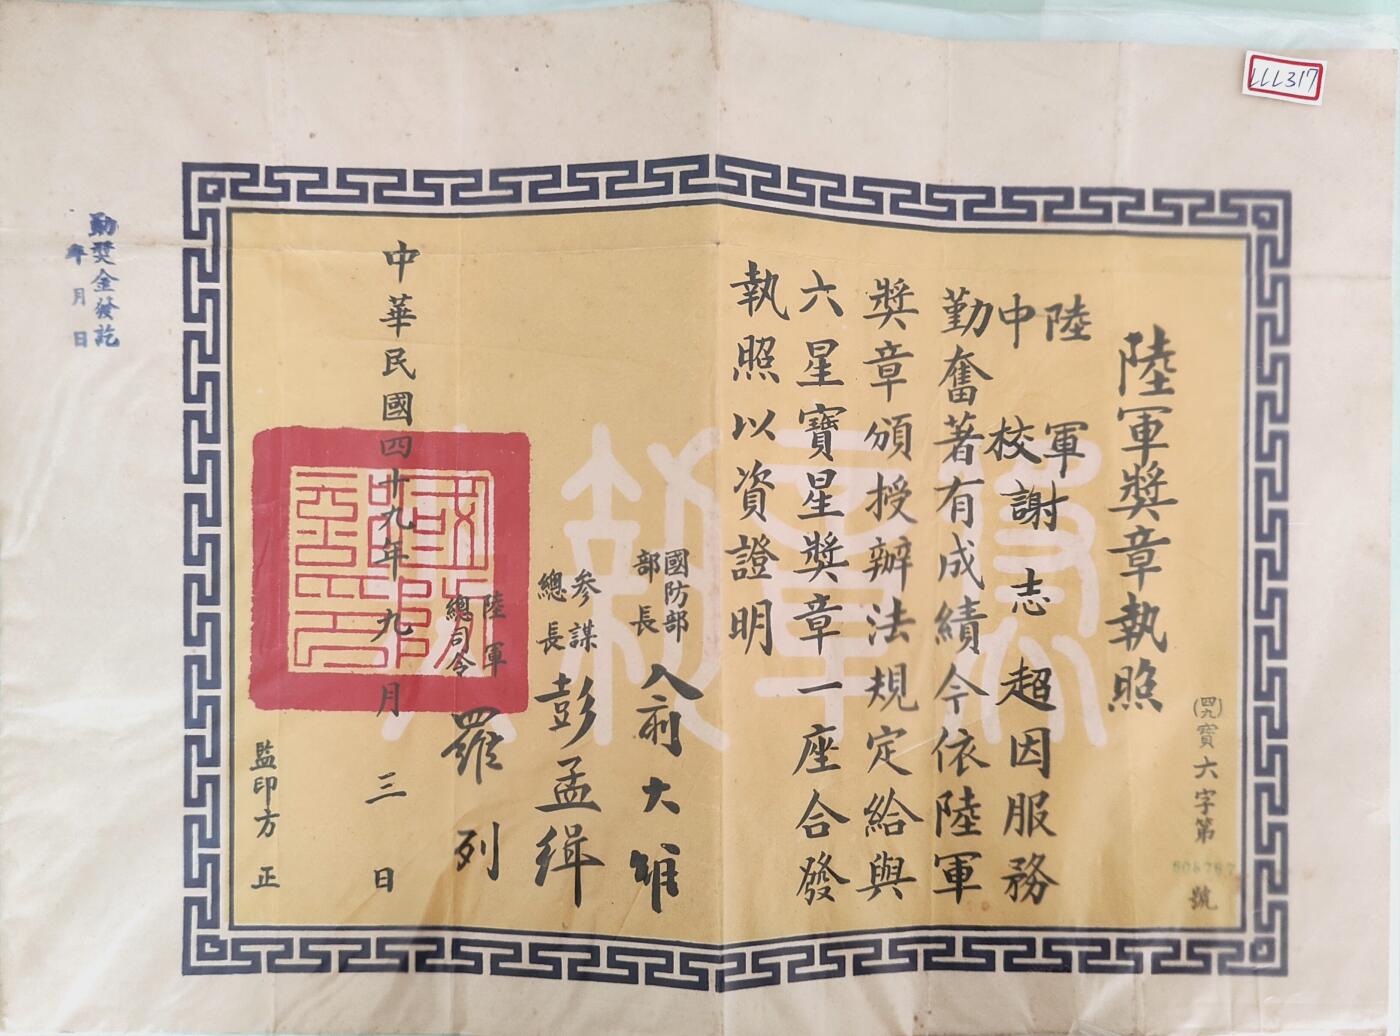 LLL317
陸軍獎章執照
(四九)寶六字第
號
陸軍
中校謝志超因服務
勤奮著有成績今依陸軍
獎章頒授辦法規定給與
六星寶星獎章一座合發
執照以資證明
國防部
部長
俞大維
參謀
總長
彭孟緝
陸軍
總司令
羅列
中華民國四十九年九月三日
監印方正
勳獎金發訖
年月日